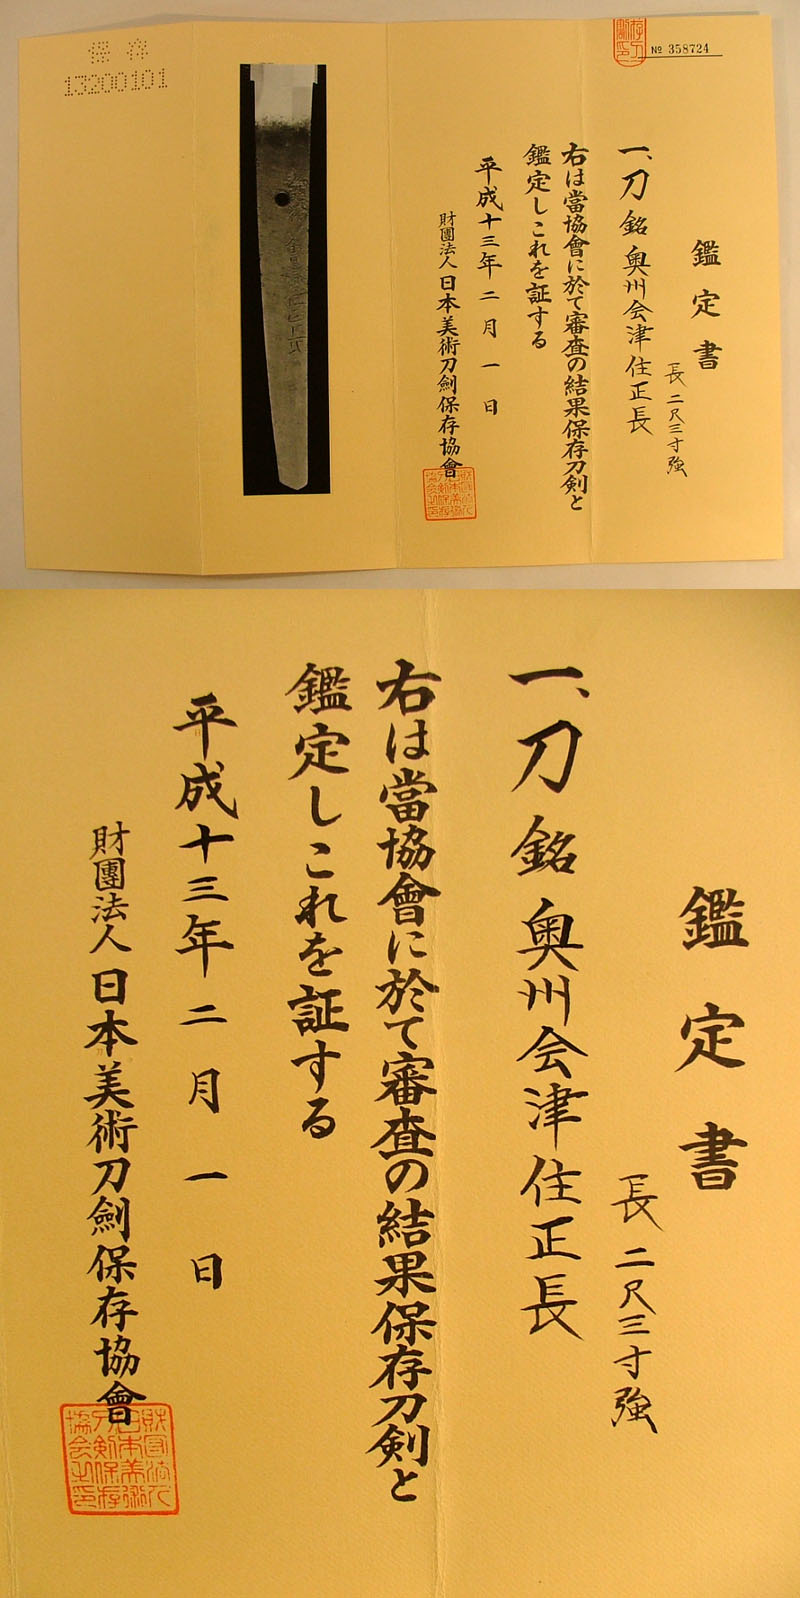 保存
13200101
№ 358724
鑑定書
長二尺三寸強
一、刀 銘 奥州会津住正長
右は當協會に於て審査の結果保存刀剣と
鑑定しこれを証する
平成十三年二月一日
財團法人日本美術刀劍保存協會
鑑定書
長二尺三寸強
一、刀 銘 奥州会津住正長
右は當協會に於て審査の結果保存刀剣と
鑑定しこれを証する
平成十三年二月一日
財團法人日本美術刀劍保存協會